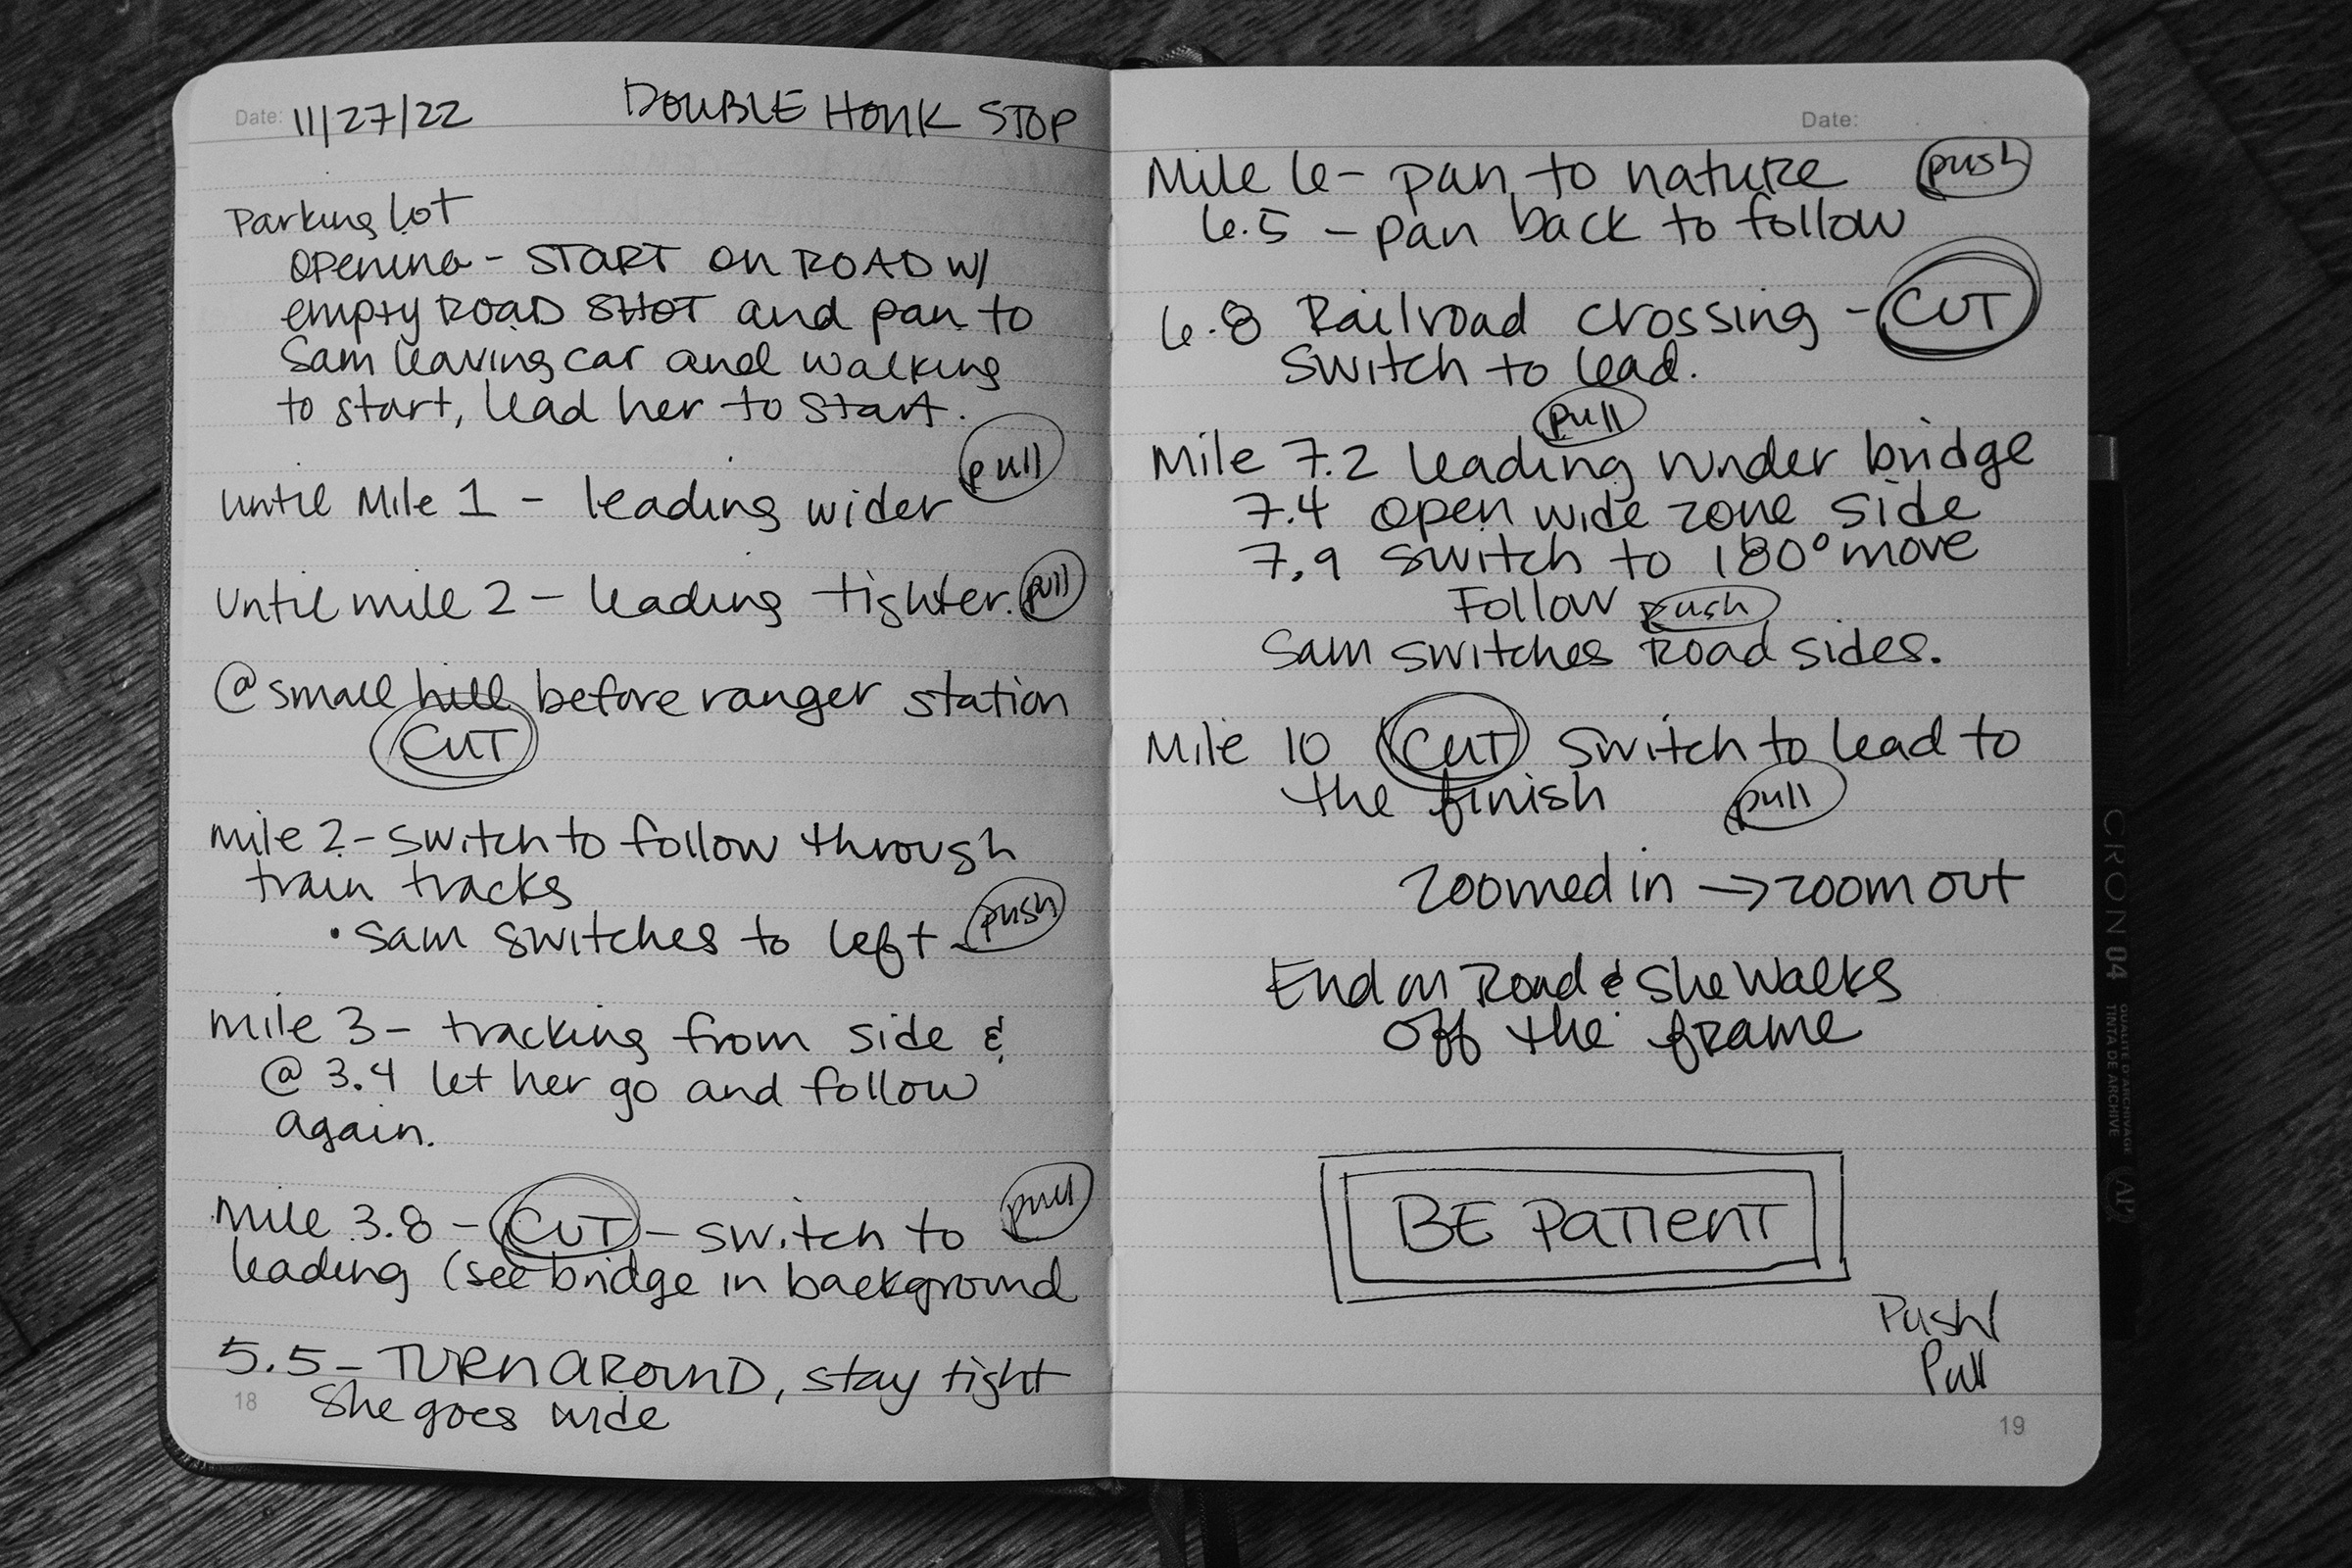 Date: 11/27/22 DOUBLE HONK STOP
Parking Lot
OPENING - START ON ROAD W/
empty ROAD SHOT and pan to
Sam leaving car and walking
to start, lead her to start.
pull
until Mile 1 - leading wider
until mile 2 - leading tighter. pull
@ small hill before ranger station
CUT
mile 2 - switch to follow through
train tracks
• Sam switches to left - push
mile 3 - tracking from side &
@ 3.4 let her go and follow
again.
Mile 3.8 - CUT - switch to pull
leading (see bridge in background
5.5 - TURN AROUND, stay tight
She goes wide
18
Date:
Mile 6 - pan to nature push
6.5 - pan back to follow
6.8 Railroad crossing - CUT
Switch to lead.
pull
Mile 7.2 leading under bridge
7.4 open wide zone side
7.9 switch to 180° move
Follow push
Sam switches Road sides.
Mile 10 CUT Switch to lead to
the finish pull
zoomed in → zoom out
End on Road & She Walks
off the frame
BE PATIENT
Push/
Pull
19
CRON 04
QUALITÉ D'ARCHIVAGE
TINTA DE ARCHIVE
AP